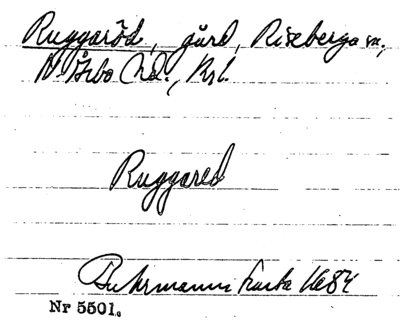 Ruggaröd, gård, Riseberga sn,
N Åsbo hd., Krl.
Ruggared
Buhrmanns karta 1684
Nr 5501.